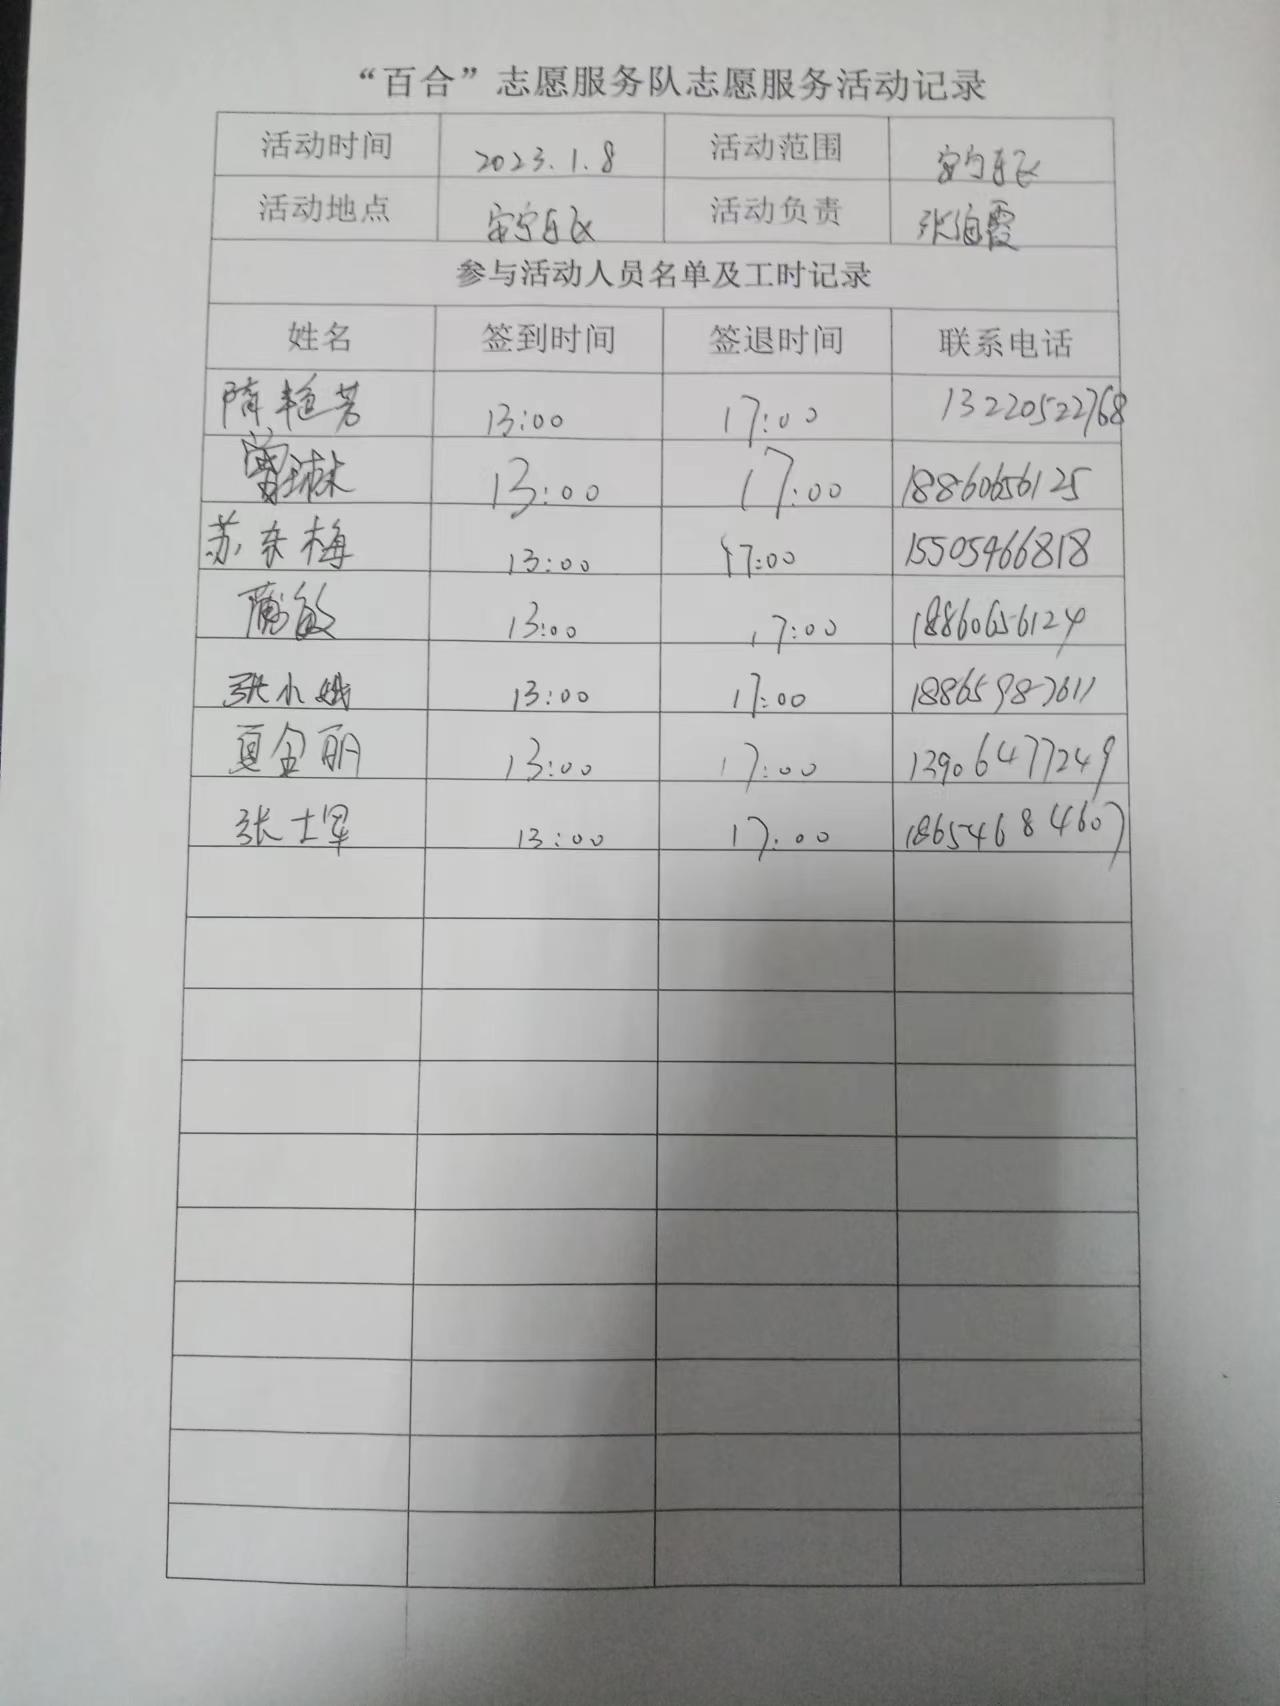 “百合”志愿服务队志愿服务活动记录
活动时间 2023.1.8 活动范围 安宁在辰
活动地点 安宁在辰 活动负责 张海霞
参与活动人员名单及工时记录
姓名 签到时间 签退时间 联系电话
隋艳芳 13:00 17:00 13220522768
曾琳 13:00 17:00 18860656125
苏东梅 13:00 17:00 15505466818
蒲敏 13:00 17:00 18860656124
张小娥 13:00 17:00 18865987611
夏金丽 13:00 17:00 13906477249
张士军 13:00 17:00 18654684607